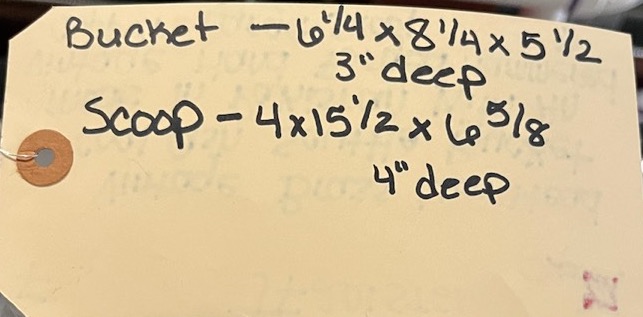 Bucket - 6 1/4 x 8 1/4 x 5 1/2
3" deep
Scoop - 4 x 15 1/2 x 6 5/8
4" deep